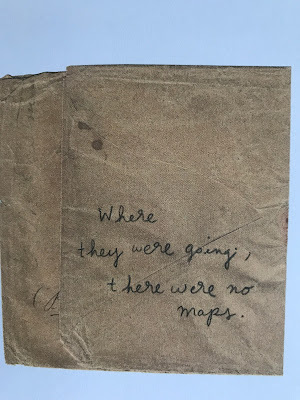 Where
they were going,
there were no
maps.